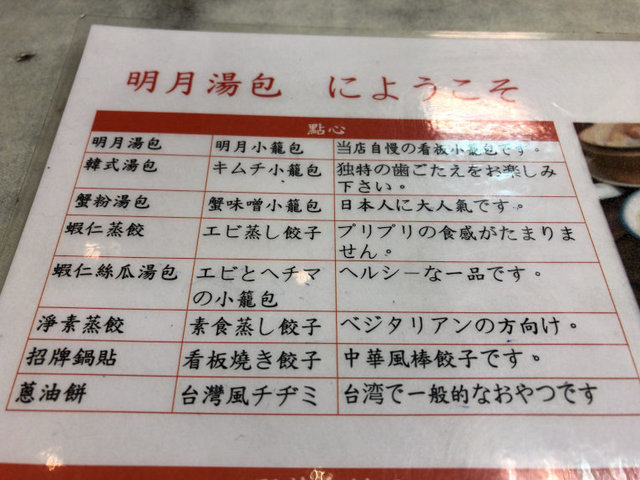 明月湯包 にようこそ
點心
明月湯包 明月小籠包 当店自慢の看板小籠包です。
韓式湯包 キムチ小籠包 独特の歯ごたえをお楽しみ
下さい。
蟹粉湯包 蟹味噌小籠包 日本人に大人氣です。
蝦仁蒸餃 エビ蒸し餃子 プリプリの食感がたまりま
せん。
蝦仁絲瓜湯包 エビとヘチマ ヘルシーな一品です。
の小籠包
淨素蒸餃 素食蒸し餃子 ベジタリアンの方向け。
招牌鍋貼 看板燒き餃子 中華風棒餃子です。
蔥油餅 台灣風チヂミ 台湾で一般的なおやつです